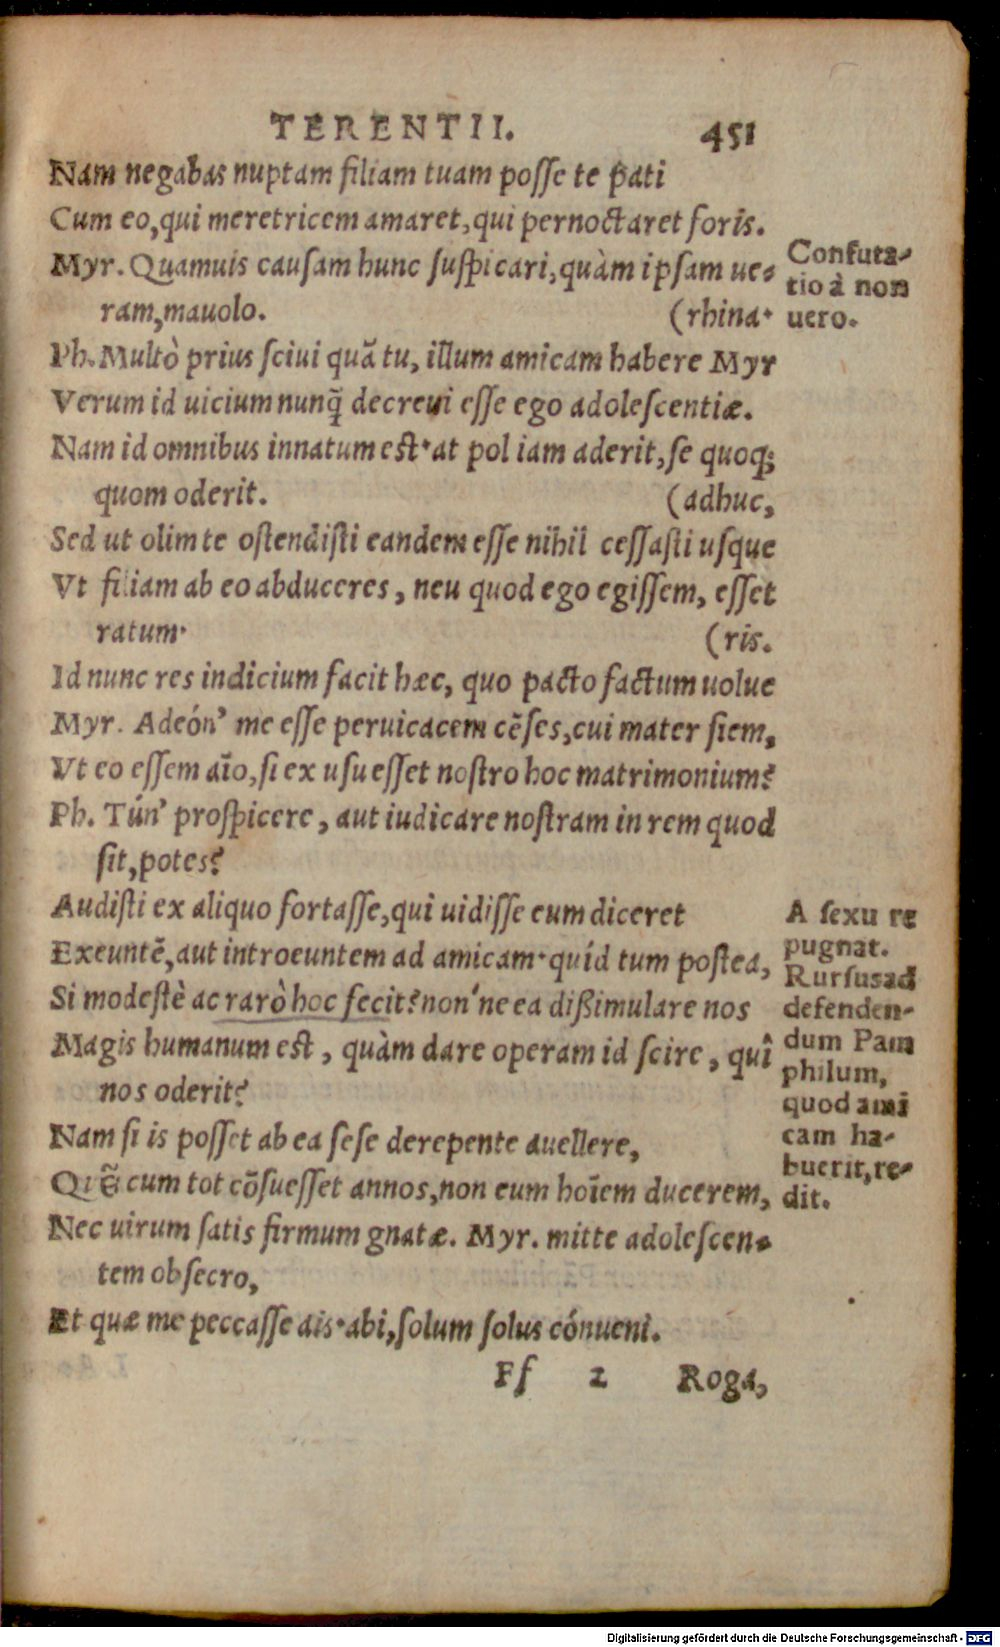 TERENTII. 451
Nam negabas nuptam filiam tuam posse te ꝑati
Cum eo, qui meretricem amaret, qui pernoctaret foris.
Myr. Quamuis causam hunc suspicari, quàm ipsam ue-
ram, mauolo. (rhina.
Ph. Multò prius sciui quã tu, illum amicam habere Myr
Verum id uicium nunq̃ decreui esse ego adolescentiæ.
Nam id omnibus innatum est. at pol iam aderit, se quoq;
quom oderit. (adhuc,
Sed ut olim te ostendisti eandem esse nihil cessasti usque
Vt filiam ab eo abduceres, neu quod ego egissem, esset
ratum. (ris.
Id nunc res indicium facit hæc, quo pacto factum uolue
Myr. Adeón' me esse peruicacem cẽses, cui mater siem,
Vt eo essem aĩo, si ex usu esset nostro hoc matrimonium?
Ph. Tún' prospicere, aut iudicare nostram in rem quod
sit, potes?
Audisti ex aliquo fortasse, qui uidisse eum diceret
Exeuntẽ, aut introeuntem ad amicam. quíd tum postea,
Si modestè ac rarò hoc fecit? non'ne ea dißimulare nos
Magis humanum est, quàm dare operam id scire, quî
nos oderit?
Nam si is posset ab ea sese derepente auellere,
cum tot cõsuesset annos, non eum hoĩem ducerem,
Nec uirum satis firmum gnatæ. Myr. mitte adolescen-
tem obsecro,
Et quæ me peccasse ais. abi, solum solus cónueni.
Ff 2 Roga,
Confuta-
tio à non
uero.
A sexu re
pugnat.
Rursus ad
defenden-
dum Pam
philum,
quod ami
cam ha-
buerit, re-
dit.
Digitalisierung gefördert durch die Deutsche Forschungsgemeinschaft - DFG